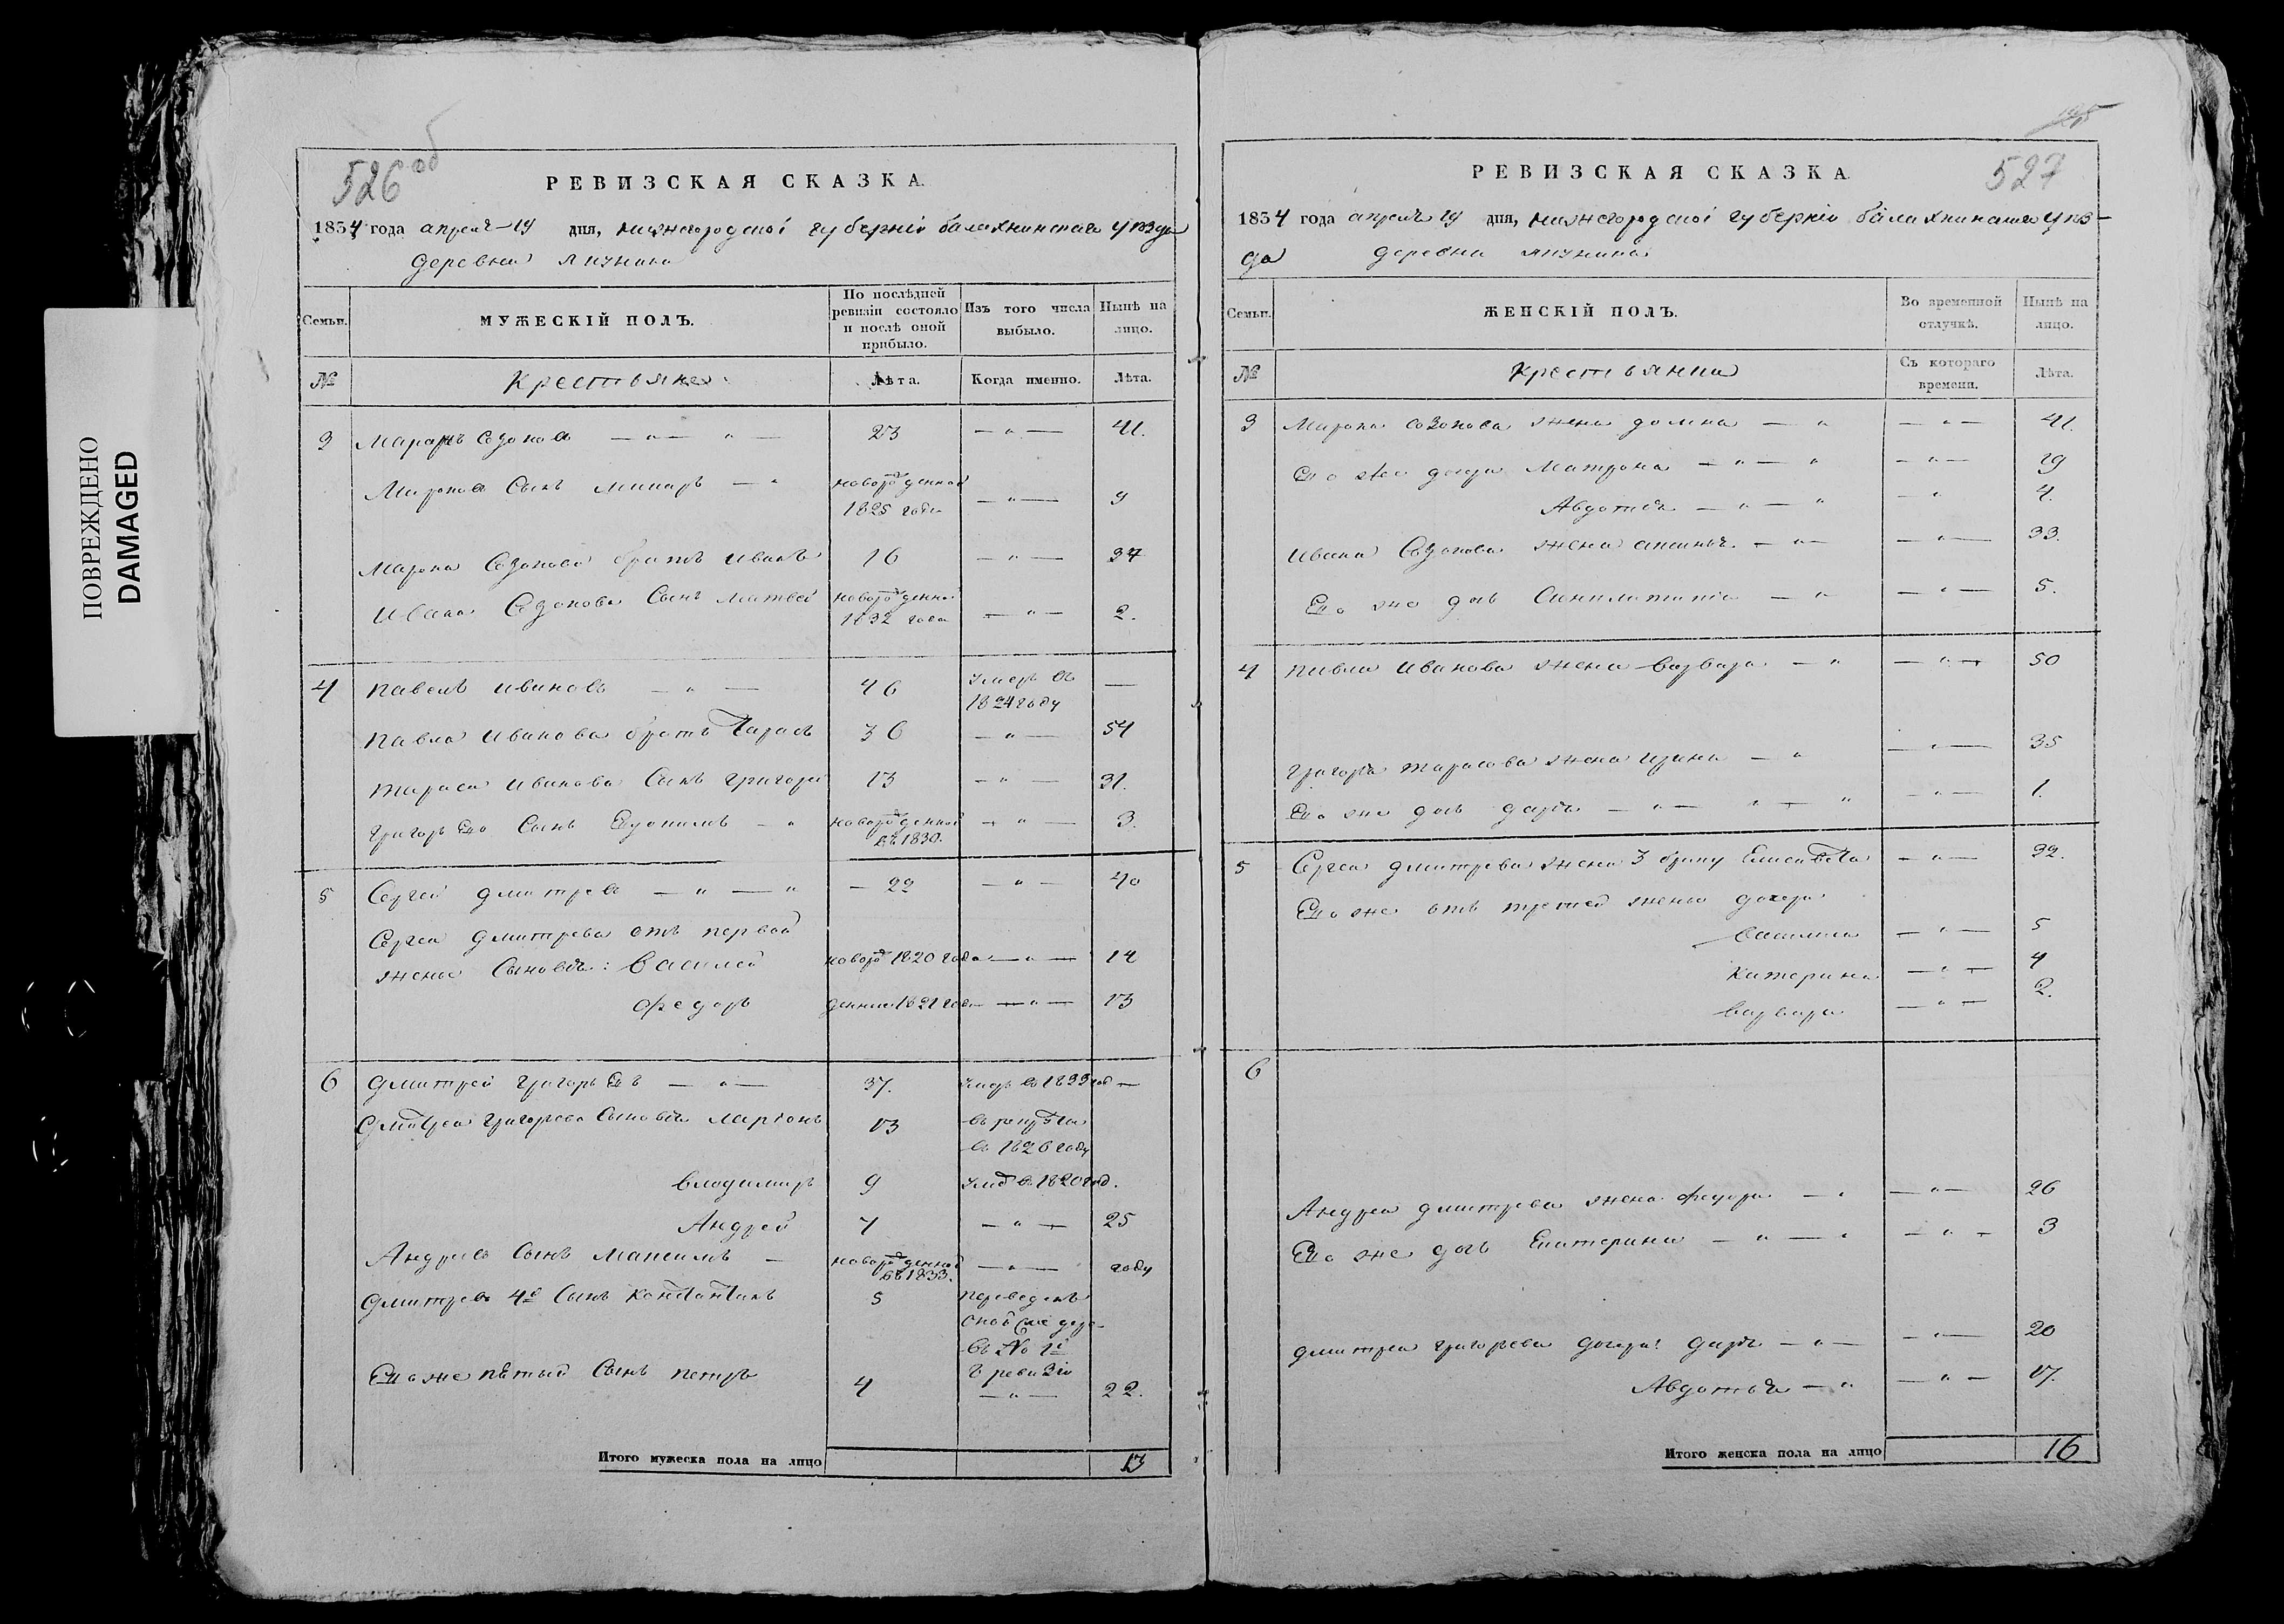 ПОВРЕЖДЕНО
DAMAGED
526 об
РЕВИЗСКАЯ СКАЗКА.
1834 года апреля 19 дня, нижегородской губерніи балахнинскаго уѣзда
деревни
Семьи.
МУЖЕСКІЙ ПОЛЪ.
По послѣдней ревизіи состояло и послѣ оной прибыло.
Изъ того числа выбыло.
Нынѣ на лицо.
№
Крестьяне
Лѣта.
Когда именно.
Лѣта.
3 Миронъ Созоновъ — „ — „ — 23 — „ — 41.
Мироновъ Сынъ — „ новорожденной 1825 года — „ — 9
Мирона Созонова братъ Иванъ 16 — „ —
Ивана Созонова Сынъ Матвей новорожденной 1832 года — „ — 2.
4 Павелъ Ивановъ — „ — 46 умеръ въ 1824 году —
Павла Иванова братъ Тарасъ 36 — „ — 54
Тараса Иванова Сынъ Григорей 13 — „ — 31.
Григорьево Сынъ — „ новорожденной въ 1830. — „ — 3.
5 Сергей Дмитревъ — „ — „ — 22 — „ — 40
Сергея Дмитрева отъ первой
жены Сыновья: Василей новорож 1820 года — „ — 14
Федоръ денные 1821 года — „ — 13
6 Дмитрей Григорьевъ — „ — 37. умеръ въ 1833 год —
Дмитрея Григорьева Сыновья Ларіонъ 13 въ рекруты въ 1826 году
Владимиръ 9 умеръ въ 1820 год.
Андрей 7 — „ — 25
Андреевъ Сынъ Максимъ — новорожденной въ 1833. — „ — году
Дмитревъ 4й Сынъ Константинъ 5 переведенъ
въ № 1й
ревизіи
Его же пятый Сынъ петръ 4 — „ — 22.
Итого мужеска пола на лицо 13
527
РЕВИЗСКАЯ СКАЗКА.
1834 года апреля 19 дня, нижегородской губерніи балахнинскаго уѣз-
да деревни
Семьи.
ЖЕНСКІЙ ПОЛЪ.
Во временной отлучкѣ.
Нынѣ на лицо.
№
Крестьянки
Съ котораго времени.
Лѣта.
3 Мирона Созонова жена домна — „ — „ — 41.
Его же дочери Матрона — „ — „ — „ — 19
Авдотья — „ — „ — „ 4.
Ивана Созонова жена — „ — — „ — 33.
Его же дочь — „ — „ — 5.
4 Павла Иванова жена Варвара — „ — „ — 50
Григорья Тарасова жена Ирина — „ — „ — 35
Его же дочь Дарья — „ — „ — „ — „ — 1.
5 Сергея Дмитрева жена 3 браку Елисавета — „ — 32.
Его же отъ третей жены дочери
Василиса — „ — 5
Катерина — „ — 4
Варвара — „ — 2.
6
Андрея Дмитрева жена Федора — „ — „ — 26
Его же дочь Екатерина — „ — „ — „ — 3
Дмитрея Григорьева дочери: Дарья — „ — — „ — 20
Авдотья — „ — „ — 17.
Итого женска пола на лицо 16